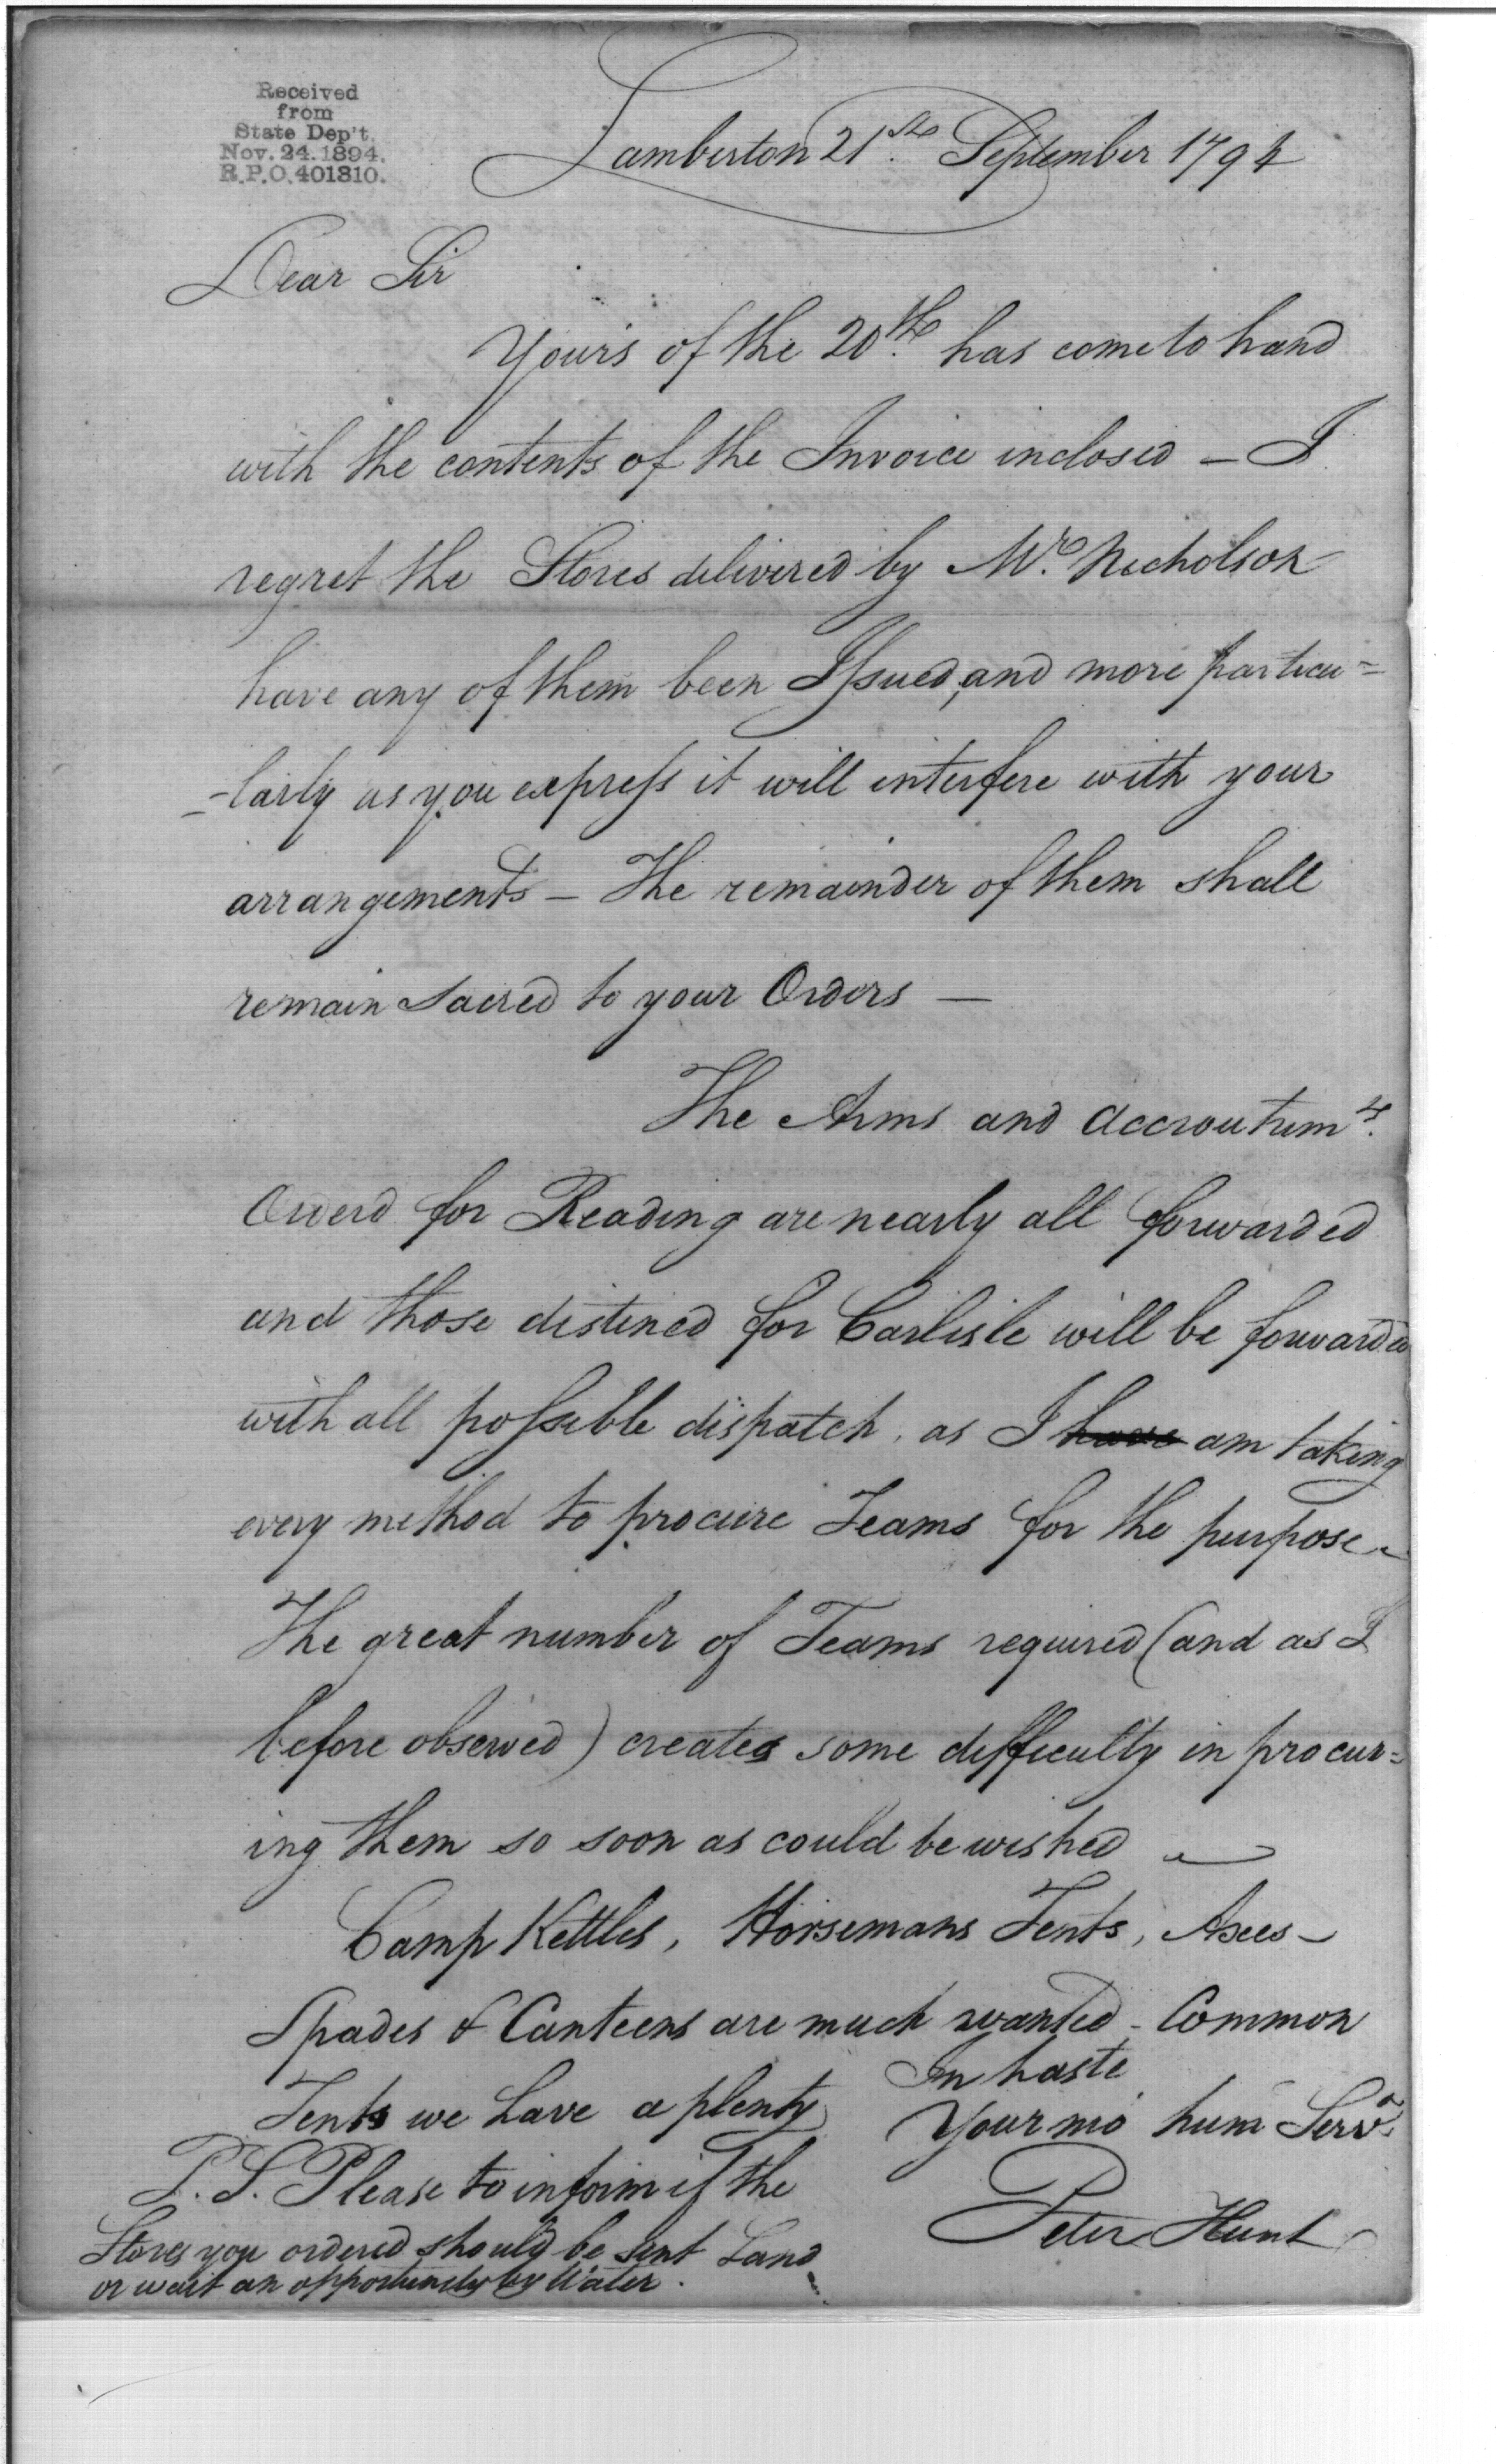 Received
from
State Dep't.
Nov. 24. 1894.
R.P.O. 401310.
Lamberton 21st. September 1794
Dear Sir
Yours of the 20th. has come to hand
with the contents of the Invoice inclosed – I
regret the Stores delivered by Mr. Nicholson
have any of them been Issued, and more particu=
=larly as you express it will interfere with your
arrangements – The remainder of them shall
remain Sacred to your Orders –
The Arms and Accroutrem ts.
Orderd for Reading are nearly all forwarded
and those distined for Carlisle will be forwarded
with all possible dispatch, as I have am taking
every method to procure Teams for the purpose –
The great number of Teams required (and as I
before observed) creates some difficulty in procur=
ing them so soon as could be wished –
Camp Kettles, Horsemans Tents, Axes –
Spades & Canteens are much wanted – Common
Tents we have a plenty
In haste
Your mo hum Servt.
Peter Hunt
P.S. Please to inform if the
Stores you ordered should be sent Land
or wait an opportunity by Water.